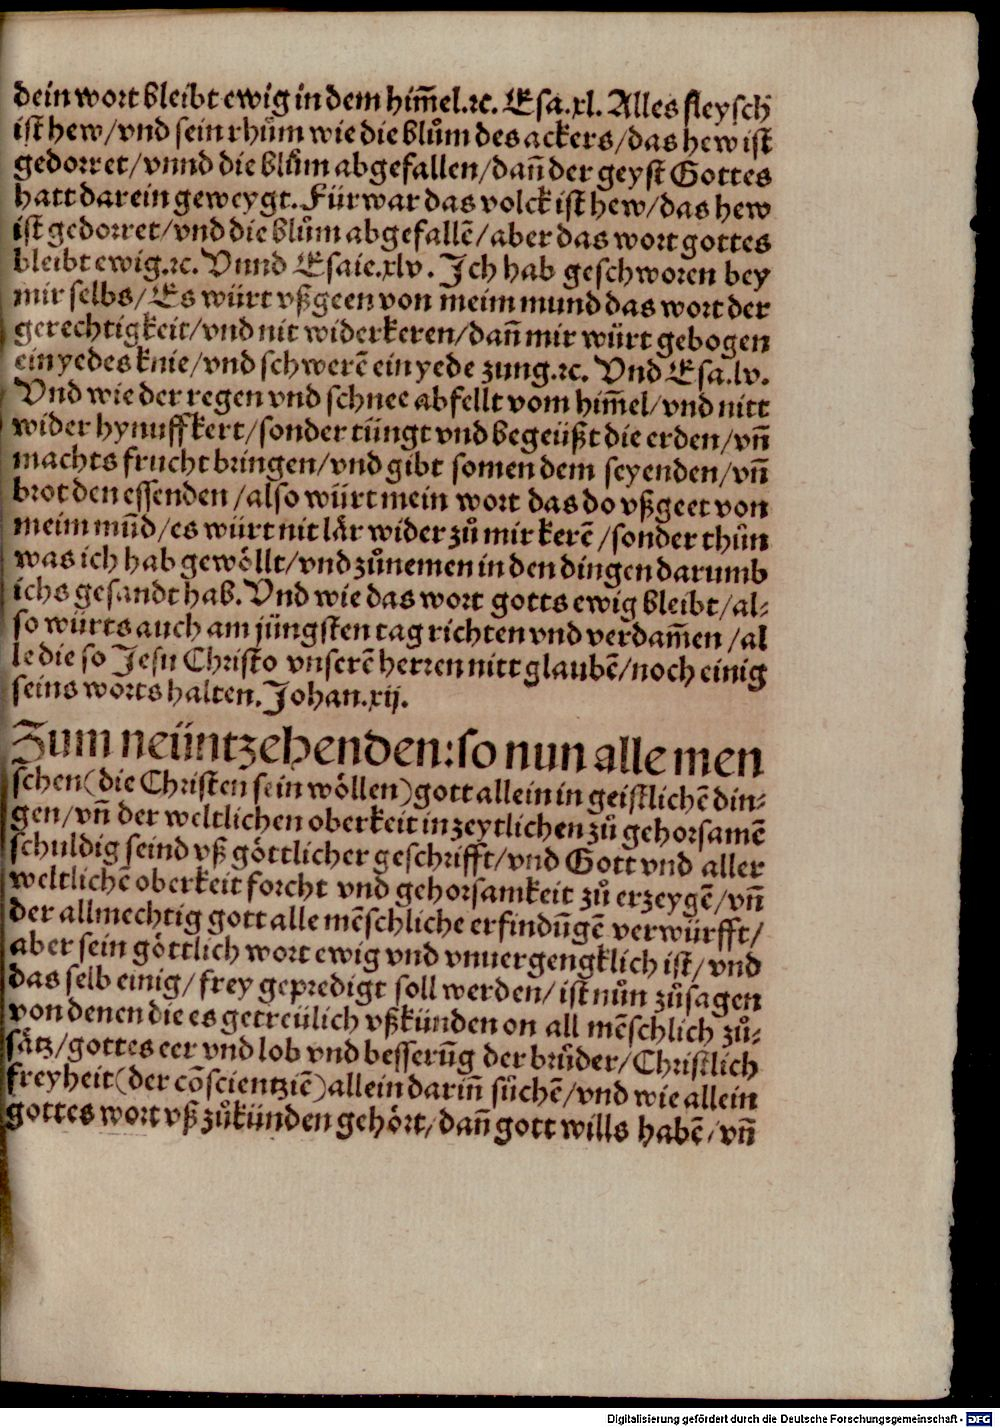 dein wort bleibt ewig in dem him̄el.ꝛc. Esa.xl. Alles fleysch
ist hew/vnd sein rhům wie die blům des ackers/das hew ist
gedorret/vnnd die blům abgefallen/dañ der geyst Gottes
hatt darein geweygt. Fürwar das volck ist hew/das hew
ist gedorret/vnd die blům abgefallē/aber das wort gottes
bleibt ewig.ꝛc. Vnnd Esaie.xlv. Ich hab geschworen bey
mir selbs/Es würt vßgeen von meim mund das wort der
gerechtigkeit/vnd nit widerkeren/dañ mir würt gebogen
ein yedes knie/vnd schwerē ein yede zung.ꝛc. Vnd Esa.lv.
Vnd wie der regen vnd schnee abfellt vom him̄el/vnd nitt
wider hynuffkert/sonder tüngt vnd begeüßt die erden/vñ
machts frucht bringen/vnd gibt somen dem seyenden/vñ
brot den essenden/also würt mein wort das do vßgeet von
meim mūd/es würt nit lär wider zů mir kerē/sonder thůn
was ich hab gewöllt/vnd zůnemen in den dingen darumb
ichs gesandt hab. Vnd wie das wort gotts ewig bleibt/al⸗
so würts auch am jüngsten tag richten vnd verdam̄en/al
le die so Jesu Christo vnserē herren nitt glaubē/noch einig
seins worts halten. Johan.xij.
Zum neüntzehenden: so nun alle men
schen (die Christen sein wöllen) gott allein in geistlichē din⸗
gen/vñ der weltlichen oberkeit in zeytlichen zů gehorsamē
schuldig seind vß göttlicher geschrifft/vnd Gott vnd aller
weltlichē oberkeit forcht vnd gehorsamkeit zů erzeygē/vñ
der allmechtig gott alle mēschliche erfindūgē verwürfft/
aber sein göttlich wort ewig vnd vnuergengklich ist/vnd
das selb einig/frey gepredigt soll werden/ist nůn zůsagen
von denen die es getreülich vßkünden on all mēschlich zů⸗
sätz/gottes eer vnd lob vnd besserūg der brůder/Christlich
freyheit (der cōscientziē) allein dariñ sůchē/vnd wie allein
gottes wort vß zůkünden gehört/dañ gott wills habē/vñ
Digitalisierung gefördert durch die Deutsche Forschungsgemeinschaft - DFG